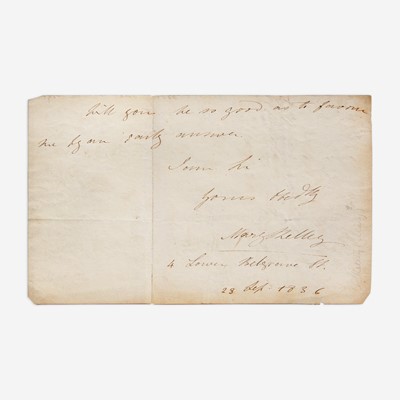 Will you be so good as to favour
me by an early answer
I am Sir
Yours Obdly
MaryShelley
4 Lower Belgrave St.
28 Sep. 1836